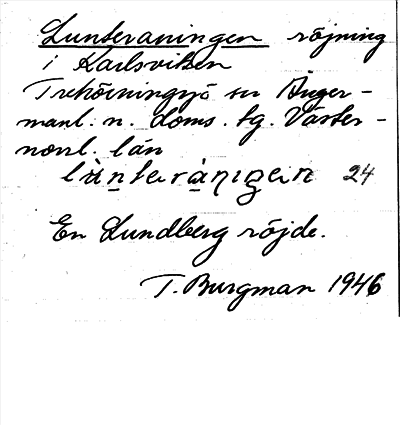 Lunteraningen röjning
i Karlsviken
Trehörningsjö sn Ånger-
manl. n. doms. tg. Väster-
norrl. län
24
En Lundberg röjde.
T. Burgman 1946